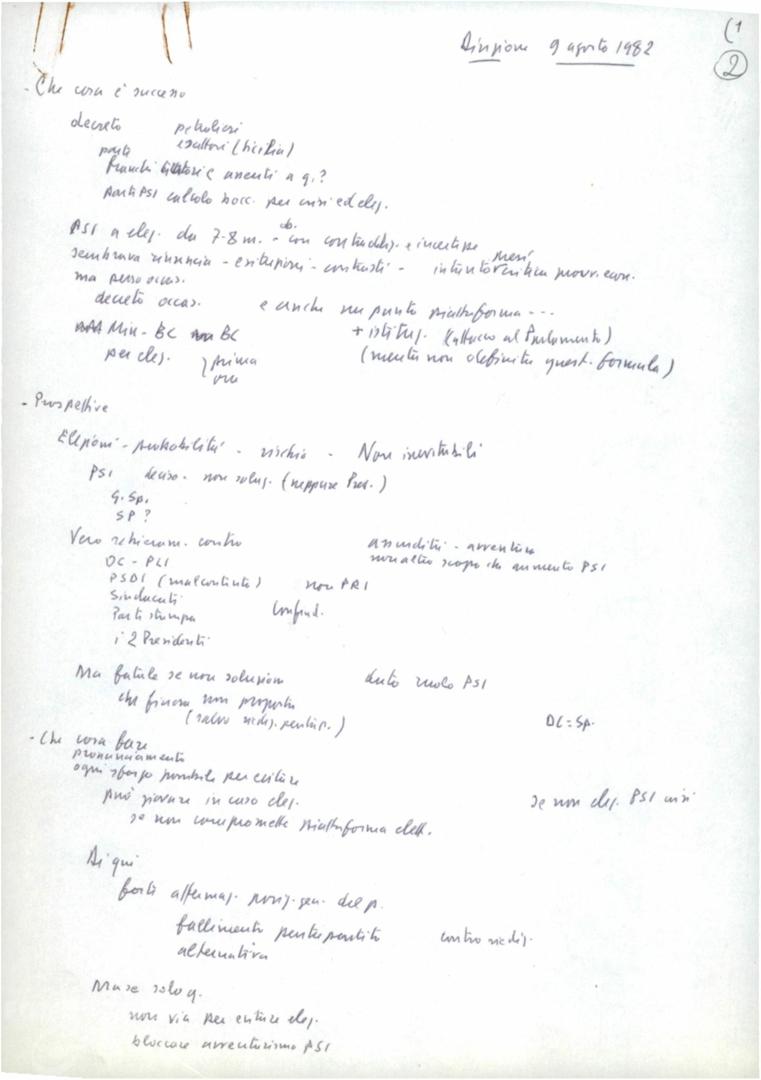 (1
2
Direzione 9 agosto 1982
- Che cosa è successo
decreto petrolieri
esattori (Sicilia)
parte
franchi tiratori e assenti a q.?
parti PSI calcolo socc. per crisi ed elez.
PSI a elez. da 7-8 m. - con contraddiz. e incertezze
sembrava rinuncia - esitazioni - contrasti - intanto critica provv. econ.
ma perso occas.
decreto occas. e anche su punto piattaforma ---
Min - BC BC + istituz. (attacco al Parlamento)
per elez. } prima (mentre non definita quest. formula)
ora
- Prospettive
Elezioni - probabilità - rischio - Non inevitabili
PSI deciso - non soluz. (neppure Pres.)
G. Sp.
SP ?
Vero schieram. contro assurdità - avventura
DC - PLI non altro scopo che aumento PSI
PSDI (malcontento) non PRI
Sindacati
Parti stampa Confind.
i 2 Presidenti
Ma fatale se non soluzioni dato ruolo PSI
che finora non proposta
(salvo riediz. pentap.) DC = Sp.
- Che cosa fare
pronunciamento
ogni sforzo possibile per evitare
può giovare in caso elez. se non elez. PSI crisi
se non compromette piattaforma elett.
Di qui
forte affermaz. posiz. gen. del p.
fallimento pentapartito contro riediz.
alternativa
Ma se solo q.
non via per evitare elez.
bloccare avventurismo PSI